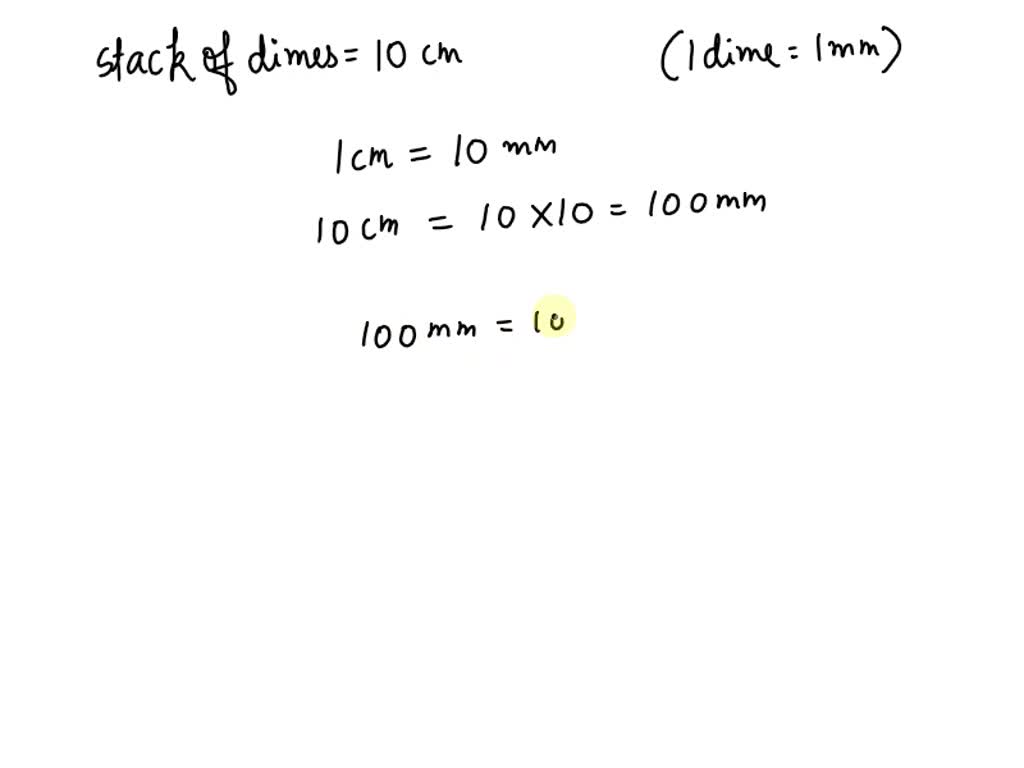 stack of dimes = 10 cm (1 dime = 1 mm)
1 cm = 10 mm
10 cm = 10 × 10 = 100 mm
100 mm = 10